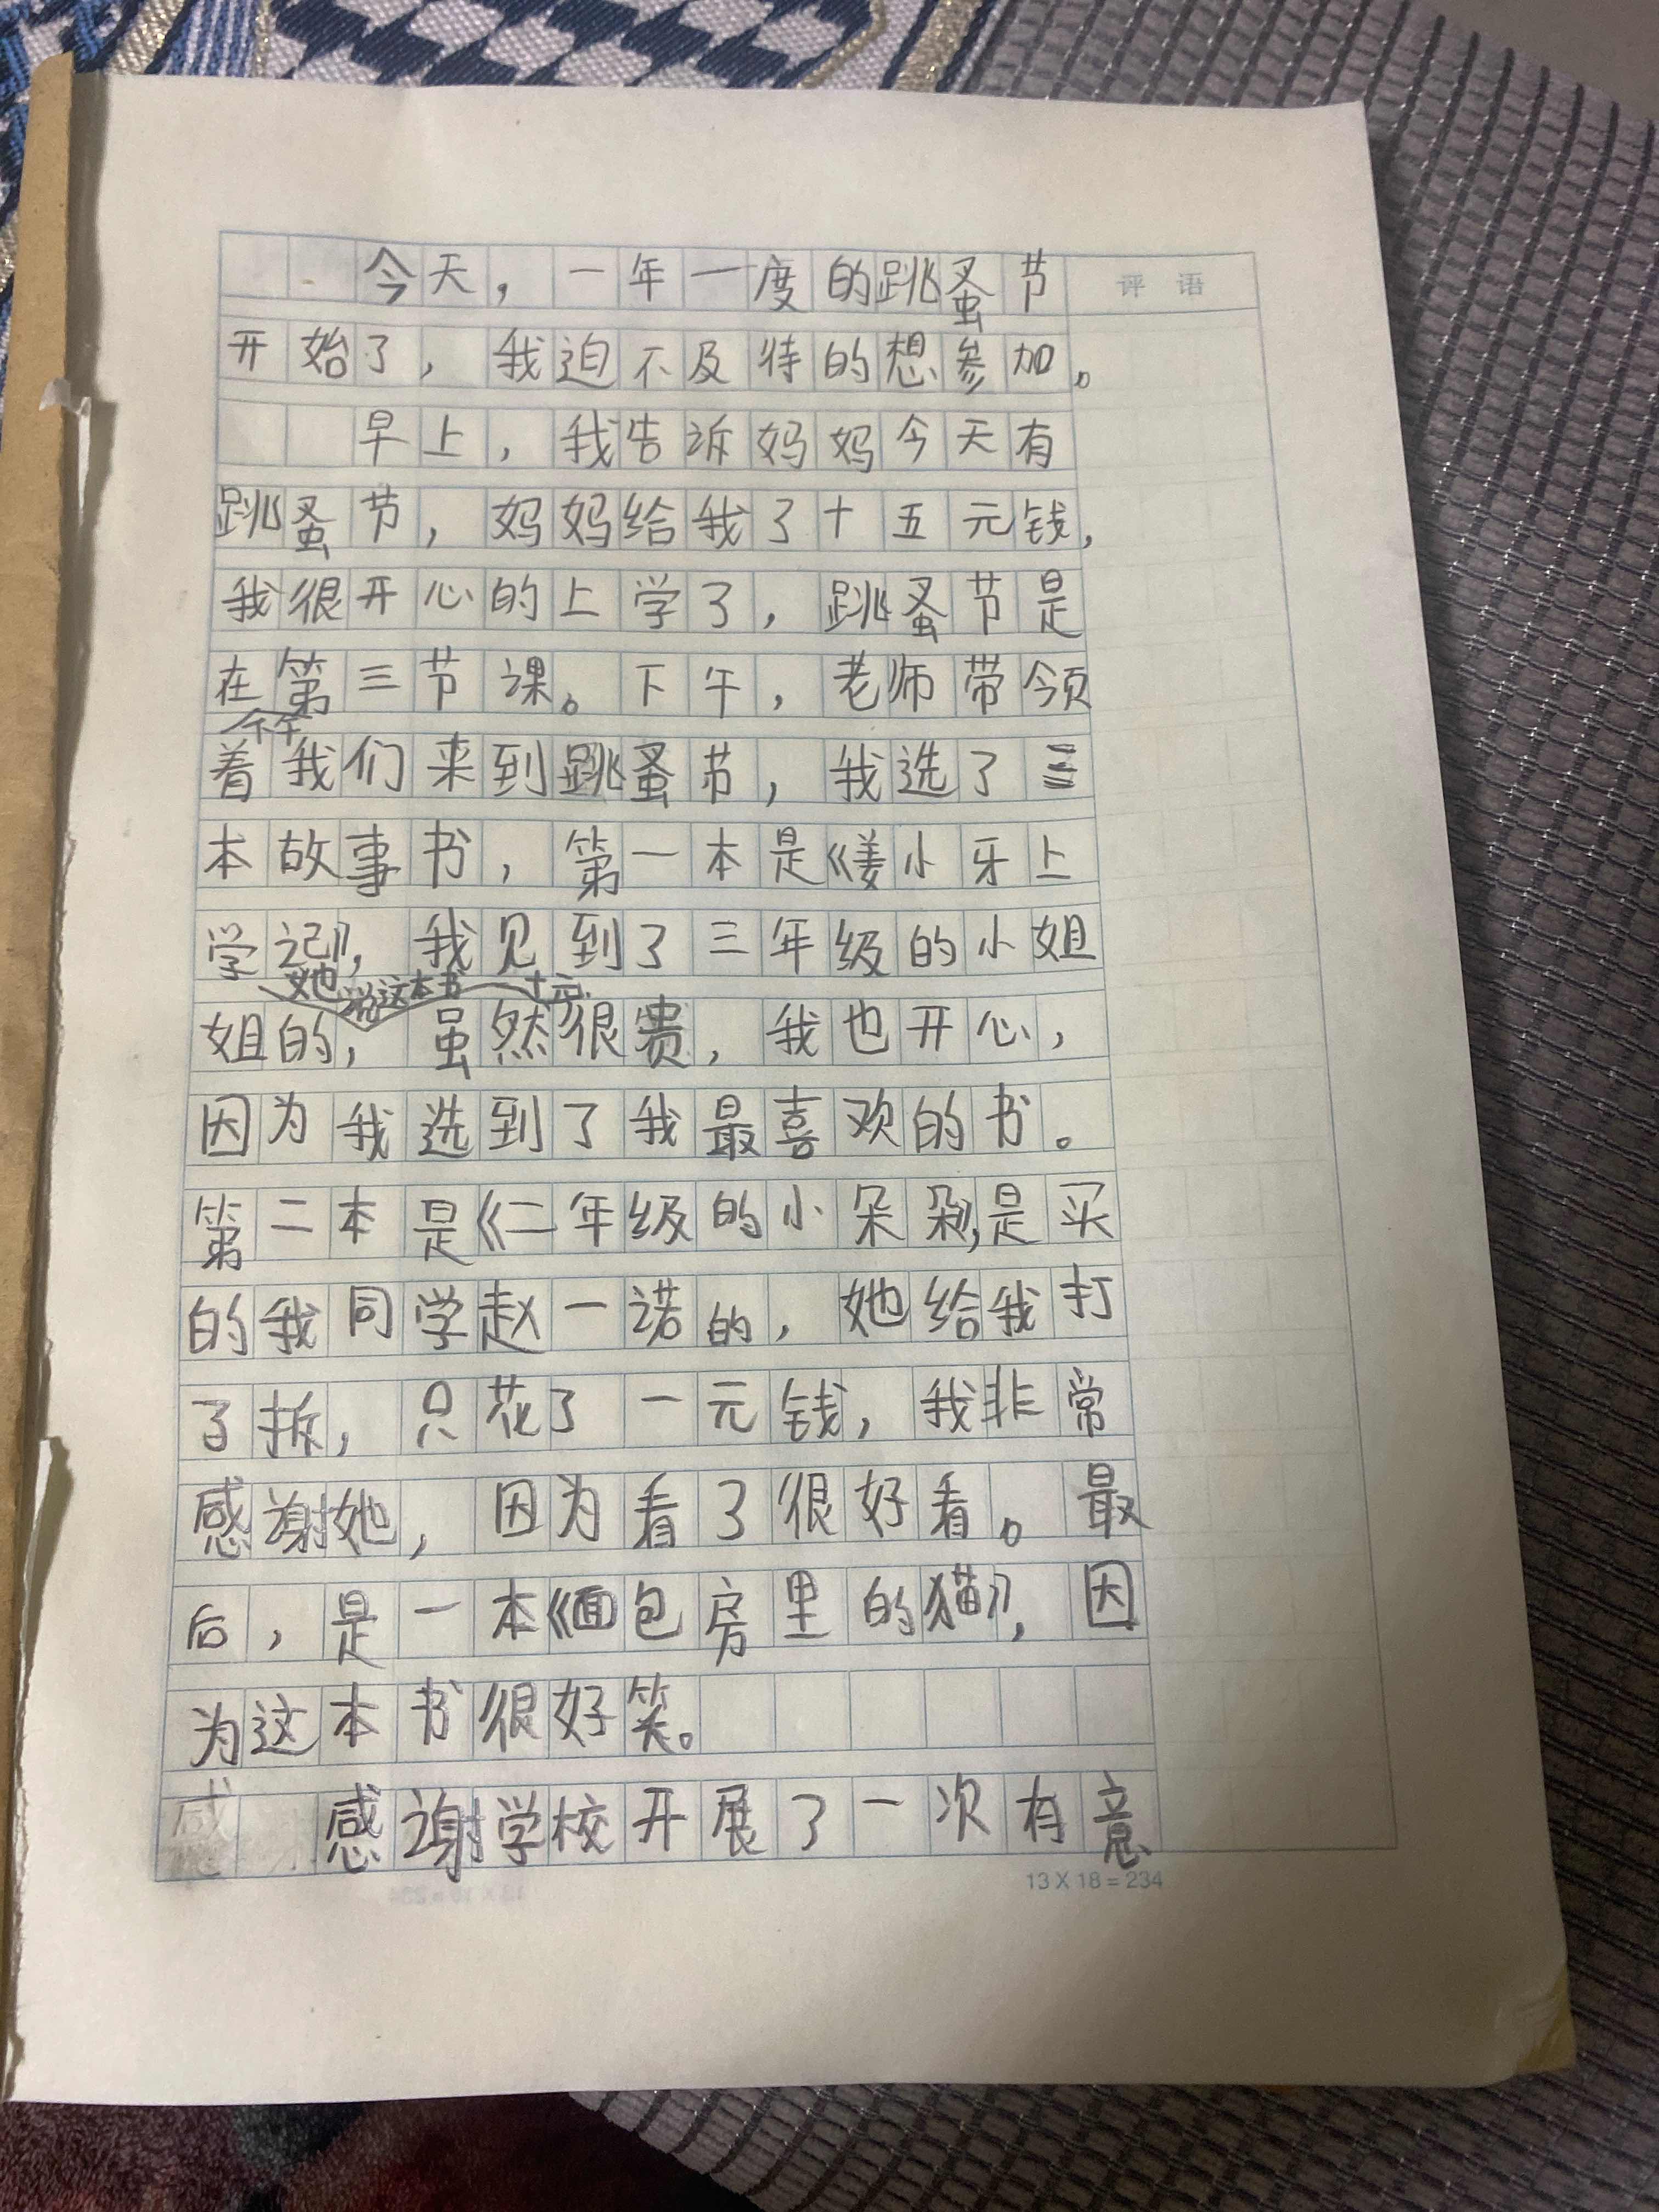 今天，一年一度的跳蚤节
评语
开始了，我迫不及待的想参加。
早上，我告诉妈妈今天有
跳蚤节，妈妈给我了十五元钱，
我很开心的上学了，跳蚤节是
在第三节课。下午，老师带领
着我们来到跳蚤节，我选了三
本故事书，第一本是《姜小牙上
学记》，我见到了三年级的小姐
她说这本书十元，
姐的，虽然很贵，我也开心，
因为我选到了我最喜欢的书。
第二本是《二年级的小朵朵》，是买
的我同学赵一诺的，她给我打
了拆，只花了一元钱，我非常
感谢她，因为看了很好看。最
后，是一本《面包房里的猫》，因
为这本书很好笑。
感谢学校开展了一次有意
13 X 18 = 234